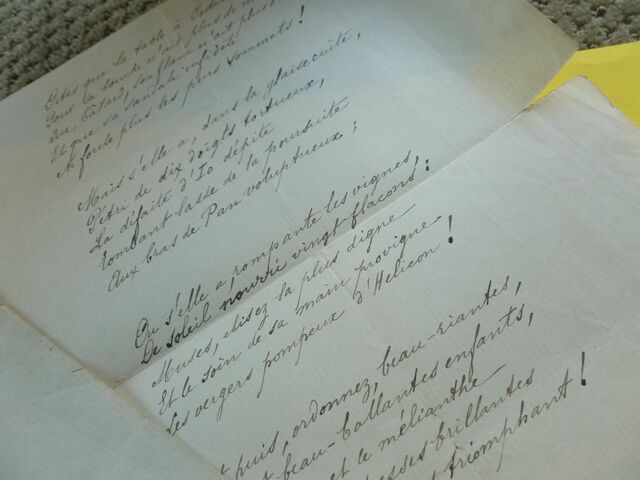 que la table à
Pour la n'ait plus de
bâtard, son flanc n'ait plus
Et que sa sandale infidèle
Ne foule plus les purs sommets!
Mais s'elle a, dans la glaise cuite,
Pétri de dix doigts tortueux,
La défaite d'Io dépite
Tombant lasse de la poursuite
Aux bras de Pan voluptueux;
Ou s'elle a, rompante les vignes,
De soleil nourri vingt flacons:
Muses, élisez la plus digne
Et le soin de sa main provigne
Les vergers pompeux d'Hélicon!
puis, ordonnez, beau-riantes,
beau-ballantes enfants,
et le mélianthe
brillantes
triomphant!